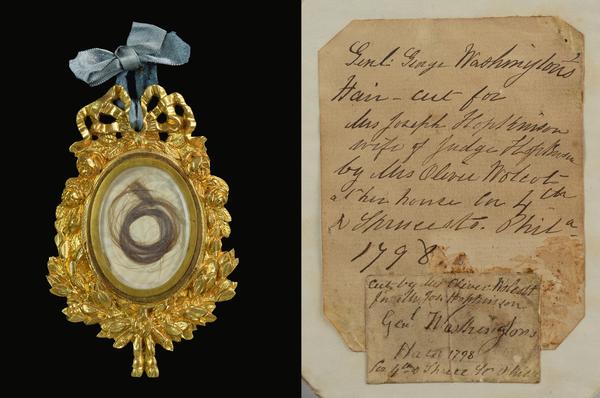 Genl: George Washington's
Hair - cut for
Mrs Joseph Hopkinson
wife of Judge Hopkinson
by Mrs Oliver Wolcot
at her house Cor 4th
& Spruce sts. Phila
1798
cut by Mrs Oliver Wolcott
for Mrs Jos Hopkinson
Genl Washington's
Hair 1798
Cor 4th & Spruce St